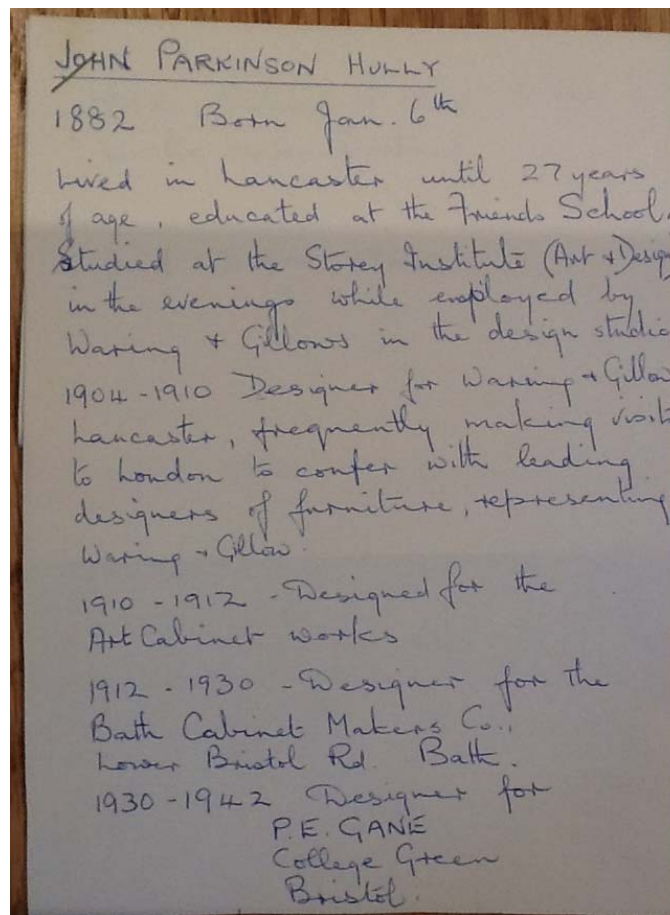 JOHN PARKINSON HULLY
1882 Born Jan. 6th
Lived in Lancaster until 27 years
of age, educated at the Friends School.
Studied at the Storey Institute (Art + Design
in the evenings while employed by
Waring + Gillows in the design studio
1904-1910 Designer for Waring + Gillow
Lancaster, frequently making visit
to London to confer with leading
designers of furniture, representing
Waring + Gillow.
1910-1912 - Designed for the
Art Cabinet works
1912 - 1930 - Designer for the
Bath Cabinet Makers Co.,
Lower Bristol Rd. Bath.
1930-1942 Designer for
P.E. GANE
College Green
Bristol.